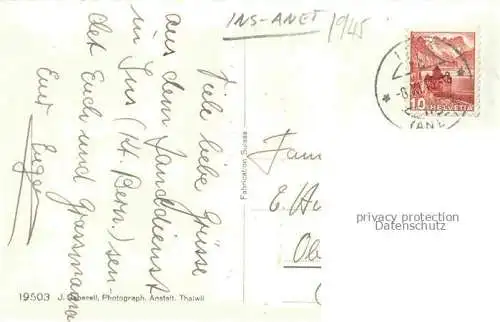 INS-ANET 1945
Viele liebe Grüsse
aus dem Landdienst
in Ins (Kt. Bern.) sen-
det Euch und Grossmama
Euer Eugen
19503 J. Gaberell, Photograph. Anstalt. Thalwil
Fabrication Suisse
10 HELVETIA
(ANET
Fam
E.
Ob
privacy protection
Datenschutz